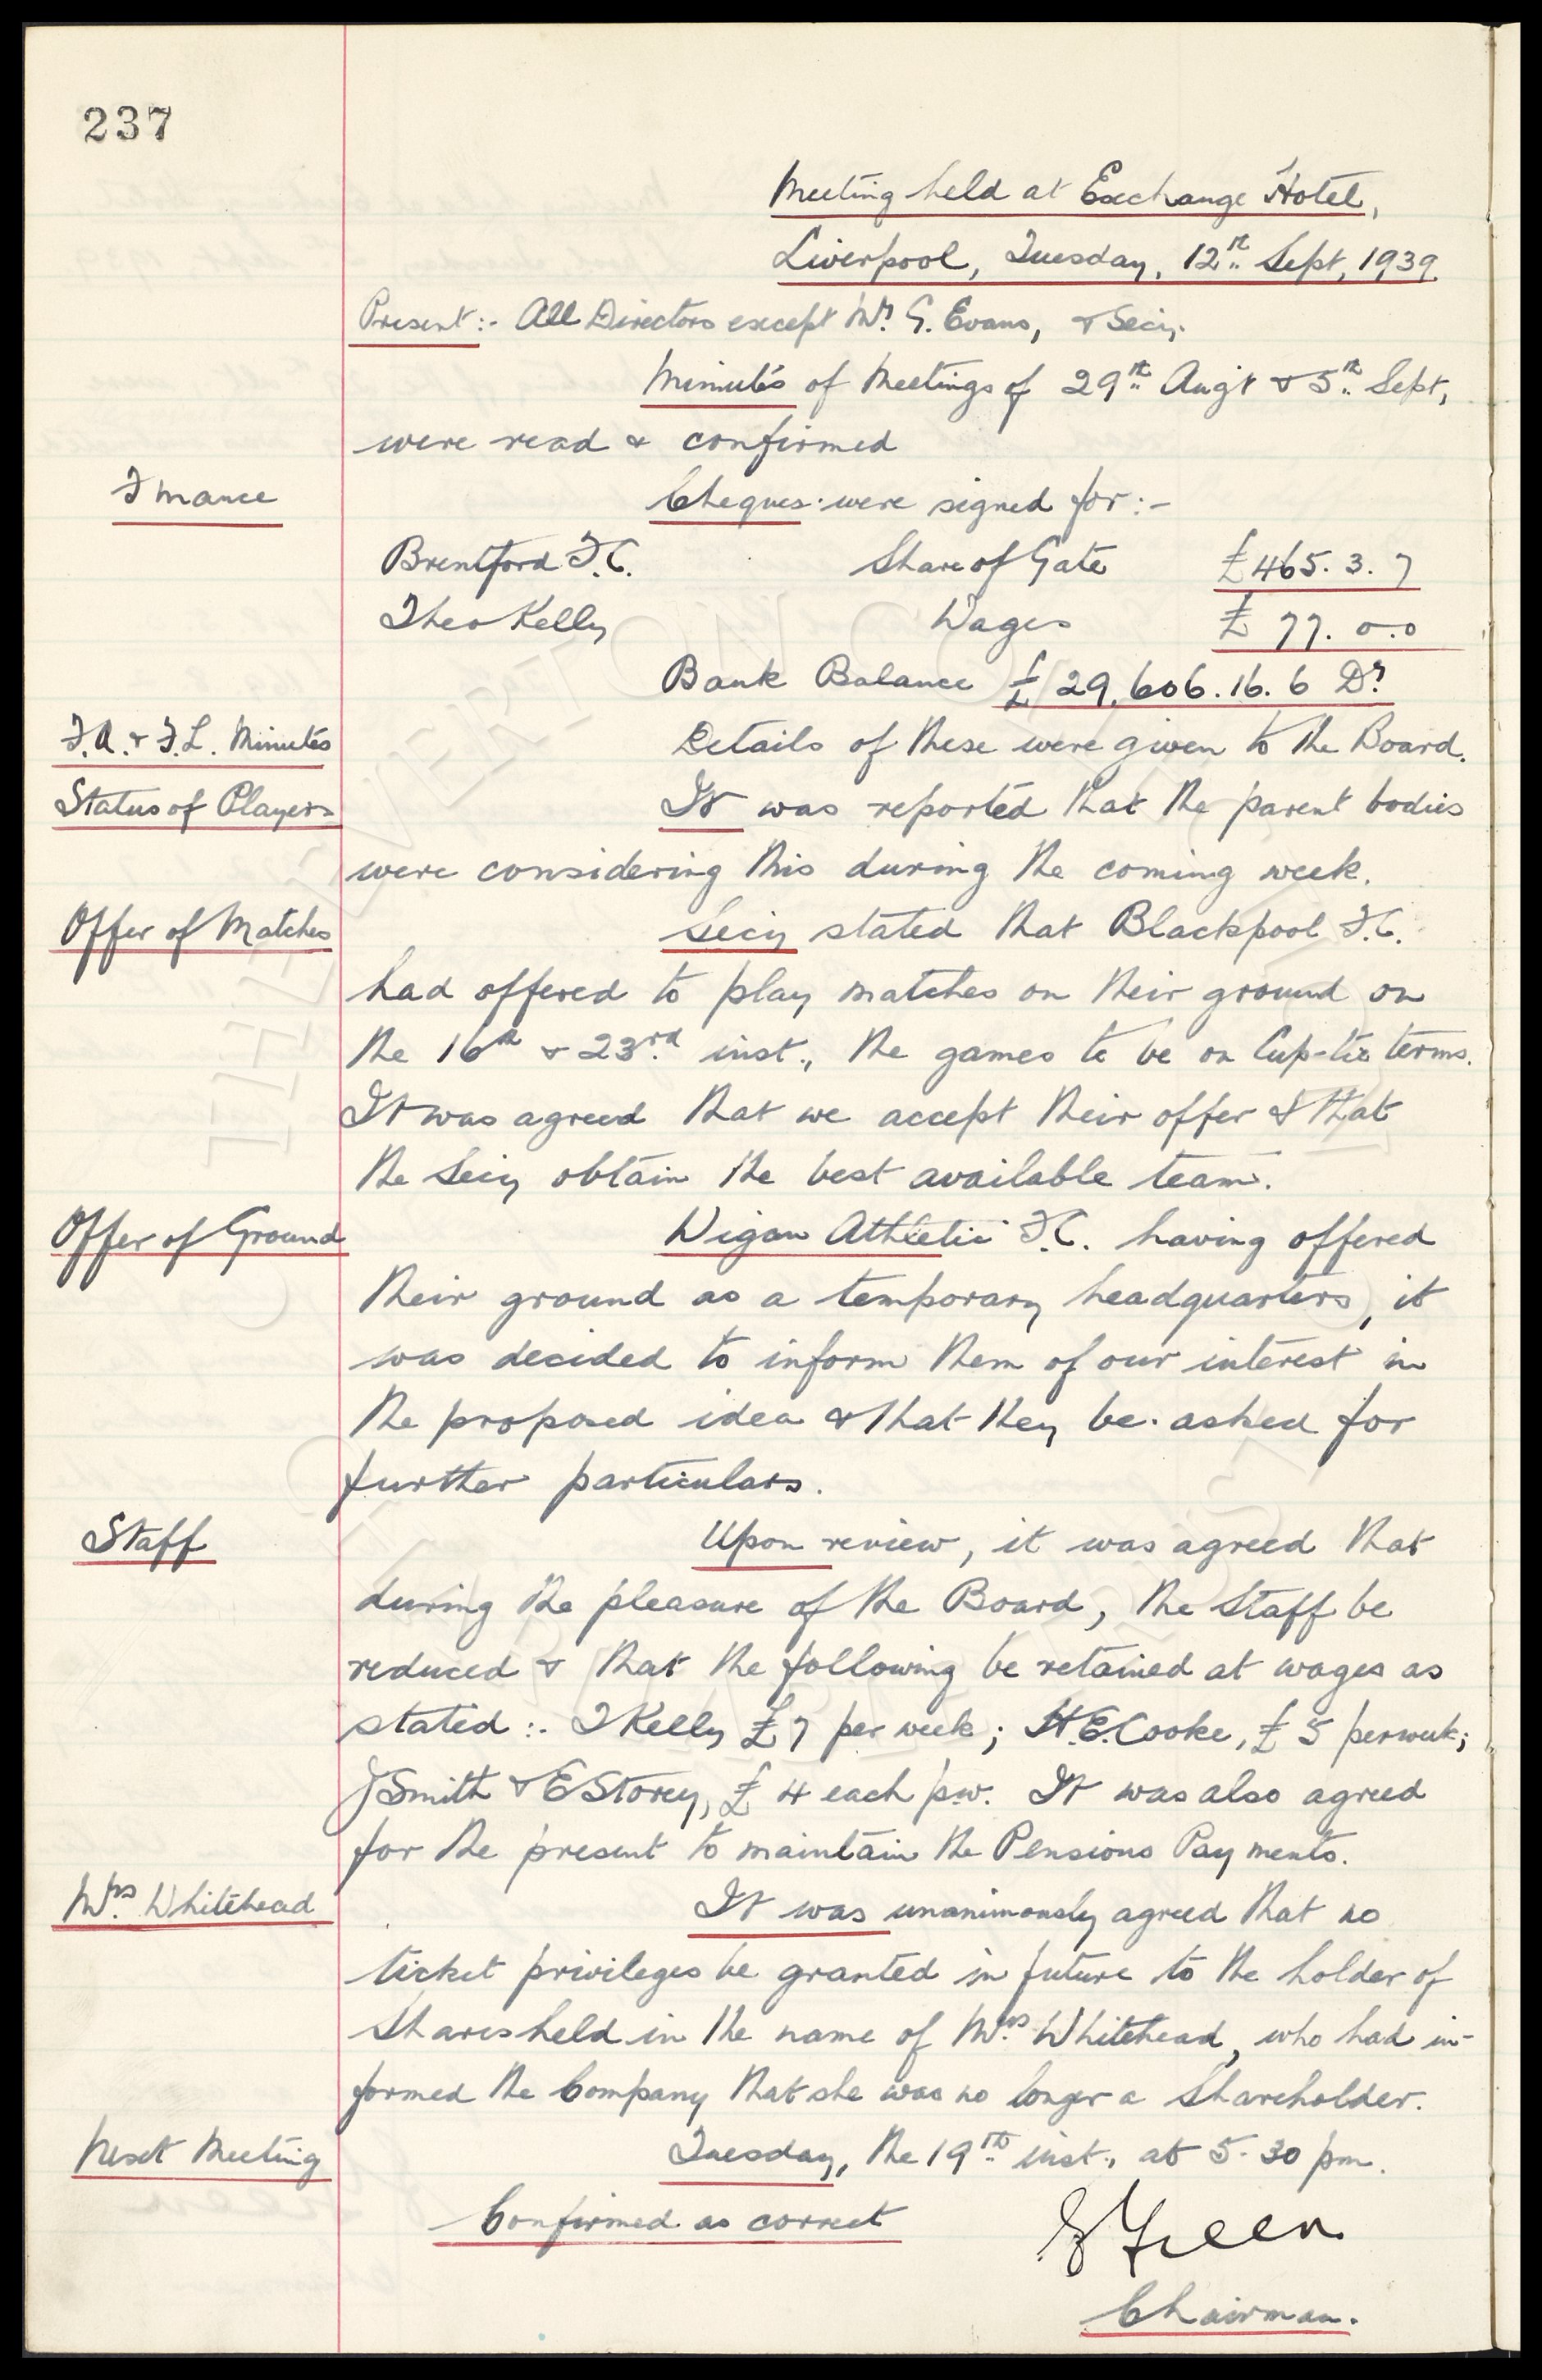 237
Meeting held at Exchange Hotel,
Liverpool, Tuesday, 12th Sept, 1939.
Present:- All Directors except Mr. G. Evans, & Secy.
Minutes of Meetings of 29th Augt & 5th Sept,
were read & confirmed
Finance
Cheques were signed for:-
Brentford F.C. Share of Gate £465. 3. 7
Theo Kelly Wages £ 77. 0. 0
Bank Balance £29,606. 16. 6 Dr
F.A. & F.L. Minutes Details of these were given to the Board.
Status of Players It was reported that the parent bodies
were considering this during the coming week.
Offer of Matches Secy stated that Blackpool F.C.
had offered to play matches on their ground on
the 16th & 23rd inst., the games to be on Cup-tie terms.
It was agreed that we accept their offer & that
the Secy obtain the best available team.
Offer of Ground Wigan Athletic F.C. having offered
their ground as a temporary headquarters, it
was decided to inform them of our interest in
the proposed idea & that they be asked for
further particulars.
Staff Upon review, it was agreed that
during the pleasure of the Board, the Staff be
reduced & that the following be retained at wages as
stated:. T Kelly £7 per week; H.E. Cooke, £5 per week;
J Smith & E Storey, £4 each p.w. It was also agreed
for the present to maintain the Pensions Payments.
Mrs. Whitehead It was unanimously agreed that no
ticket privileges be granted in future to the holder of
Shares held in the name of Mrs. Whitehead, who had in-
formed the Company that she was no longer a Shareholder.
Next Meeting Tuesday, the 19th inst., at 5-30 pm.
Confirmed as correct
Green
Chairman.